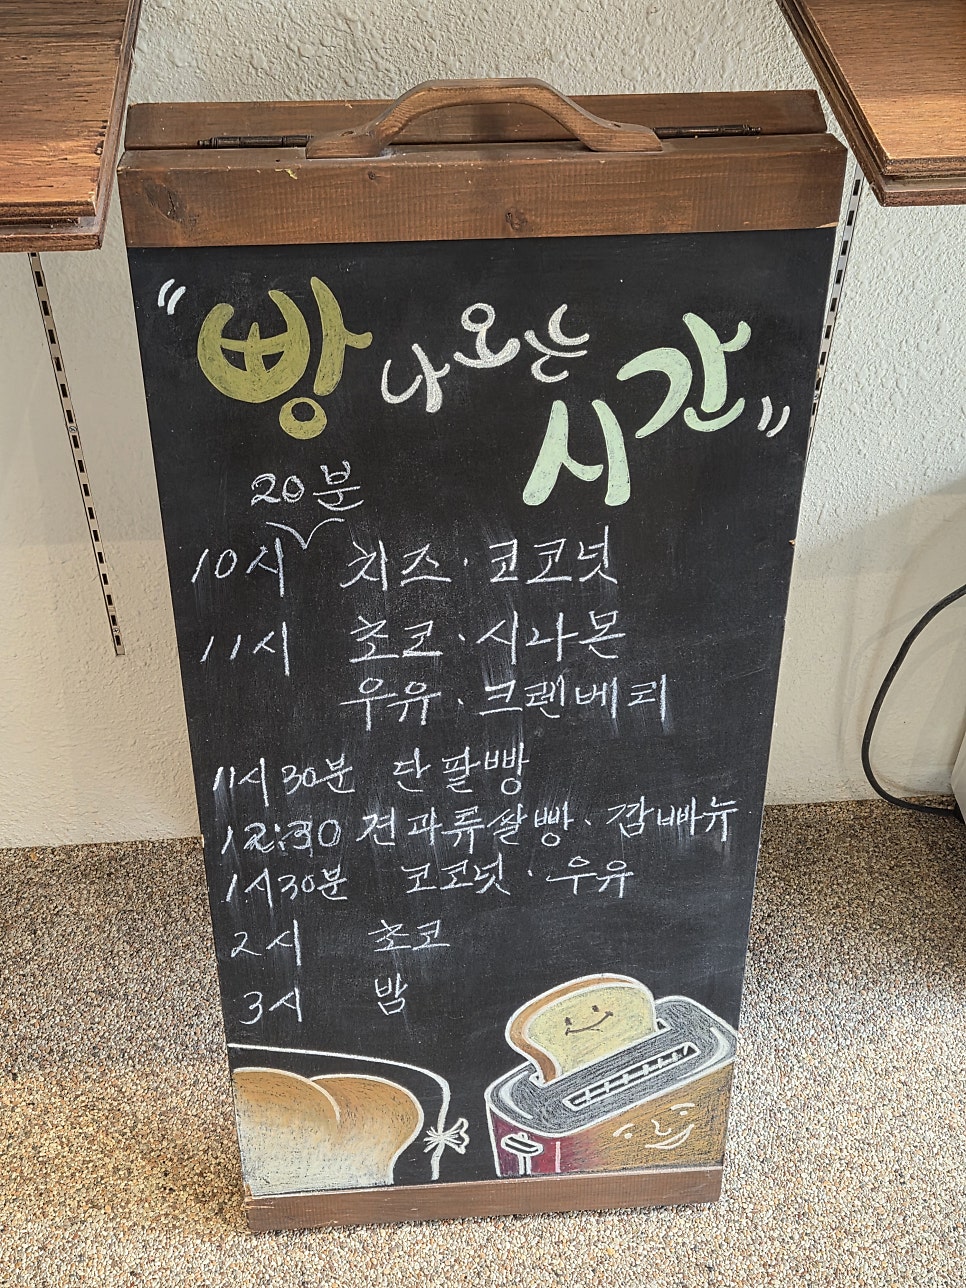 "빵 나오는
시간"
20분
10시 치즈·코코넛
11시 초코·시나몬
우유·크랜베리
11시30분 단팥빵
12:30 견과류쌀빵·깜빠뉴
1시30분 코코넛·우유
2시 초코
3시 밤